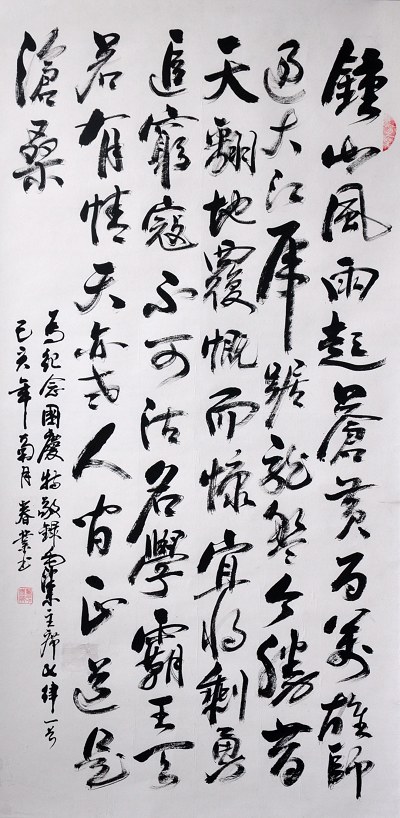 鍾山風雨起蒼黃百萬雄師
過大江虎踞龍盤今勝昔
天翻地覆慨而慷宜將剩勇
追窮寇不可沽名學霸王天
若有情天亦老人間正道是
滄桑
為紀念國慶特敬錄毛澤東主席七律一首
己亥年菊月春業书